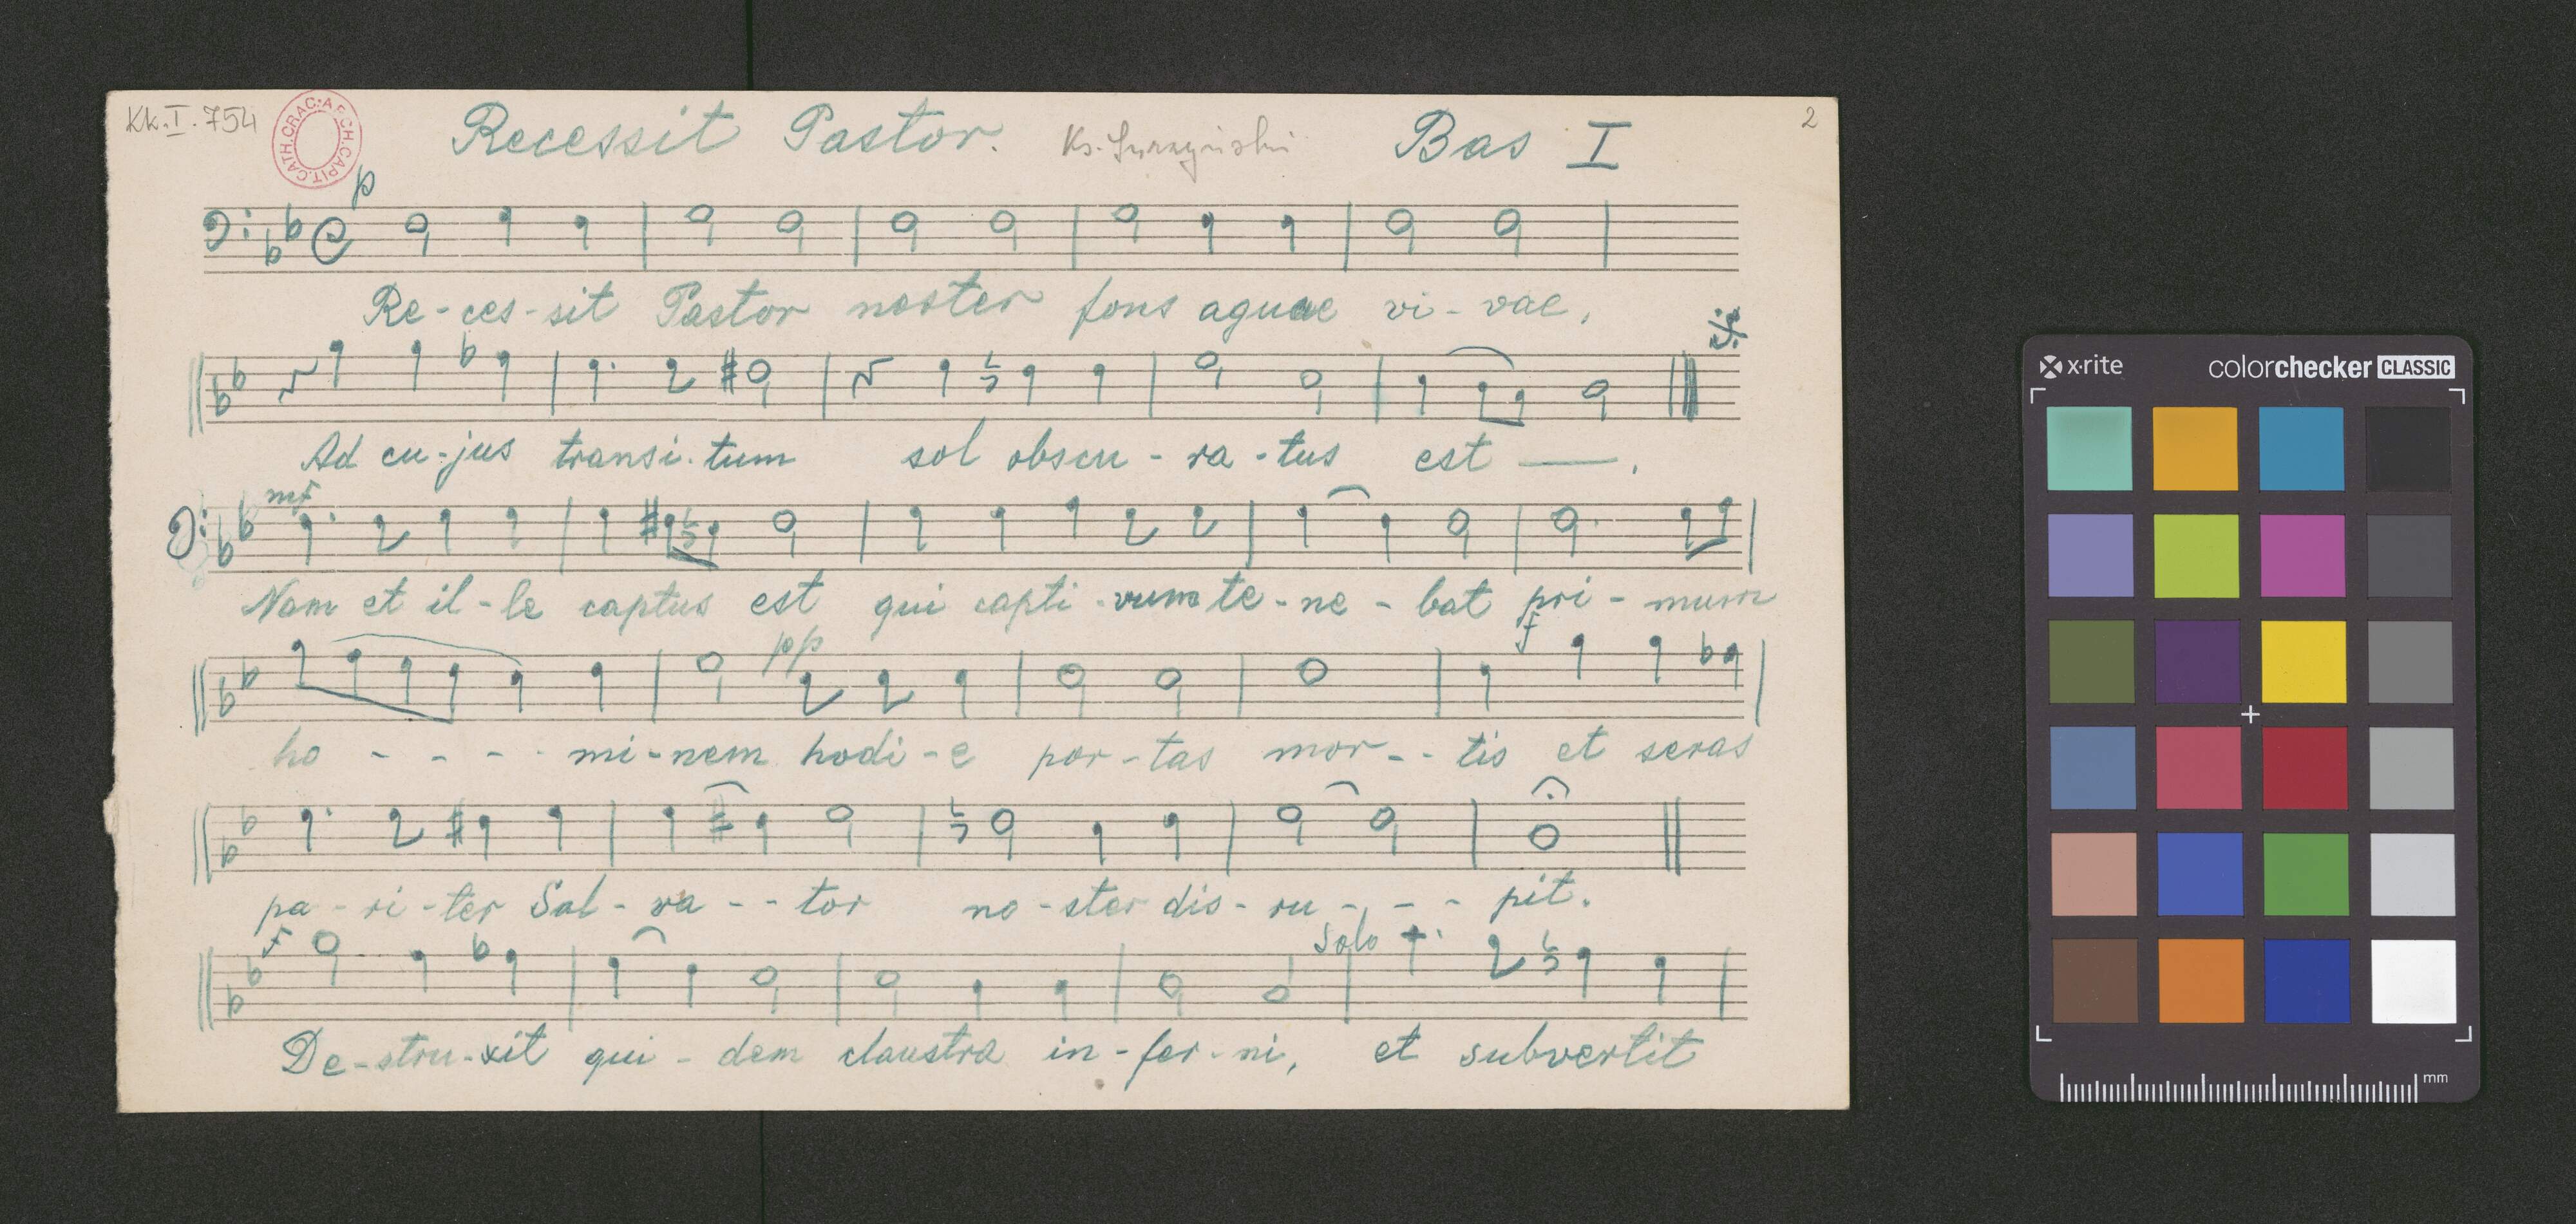 Kk. I. 754
CATH. CRAC. ARCH. CAPIT.
Recessit Pastor.
Bas I
2
p
Re-ces-sit Pastor noster fons aquae vi-vae,
Ad cu-jus transi-tum sol obscu-ra-tus est —.
mf
Nam et il-le captus est qui capti-vum te-ne-bat pri-mum
pp
f
ho - - - - mi-nem hodi-e por-tas mor - - tis et seras
pa-ri-ter Sal-va - - tor no-ster dis-ru - - - pit.
f
Solo
De-stru-xit qui-dem claustra in-fer-ni, et subvertit
x·rite
colorchecker CLASSIC
mm